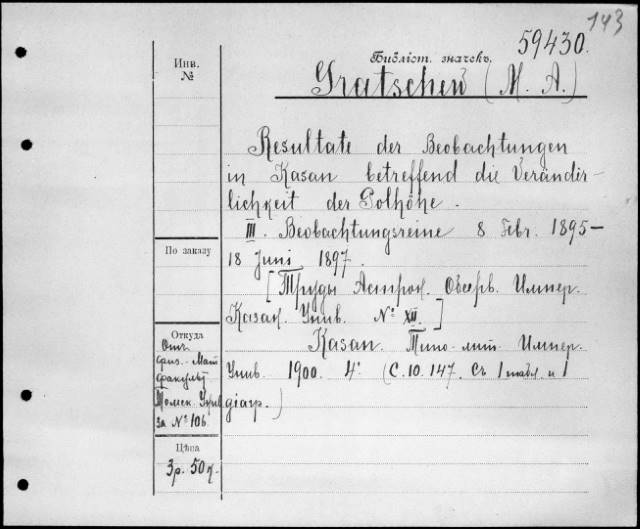 143
59430.
Инв.
№
Библіот. значекъ.
Gratschew (M. A.)
Resultate der Beobachtungen
in Kasan betreffend die Veränder-
lichkeit der Polhöhe.
III. Beobachtungsreihe 8 Febr. 1895–
18 Juni 1897.
[Труды Астрон. Обсерв. Импер.
Казан. Унив. № XII.]
Kasan. Типо-лит. Импер.
Унив. 1900. 4° (С. 10. 147. Съ 1 табл. и 1
діагр.)
По заказу
Откуда
Отъ
физ.-Мат
факульт
Томск. Унив
за № 106.
Цѣна
3р. 50к.